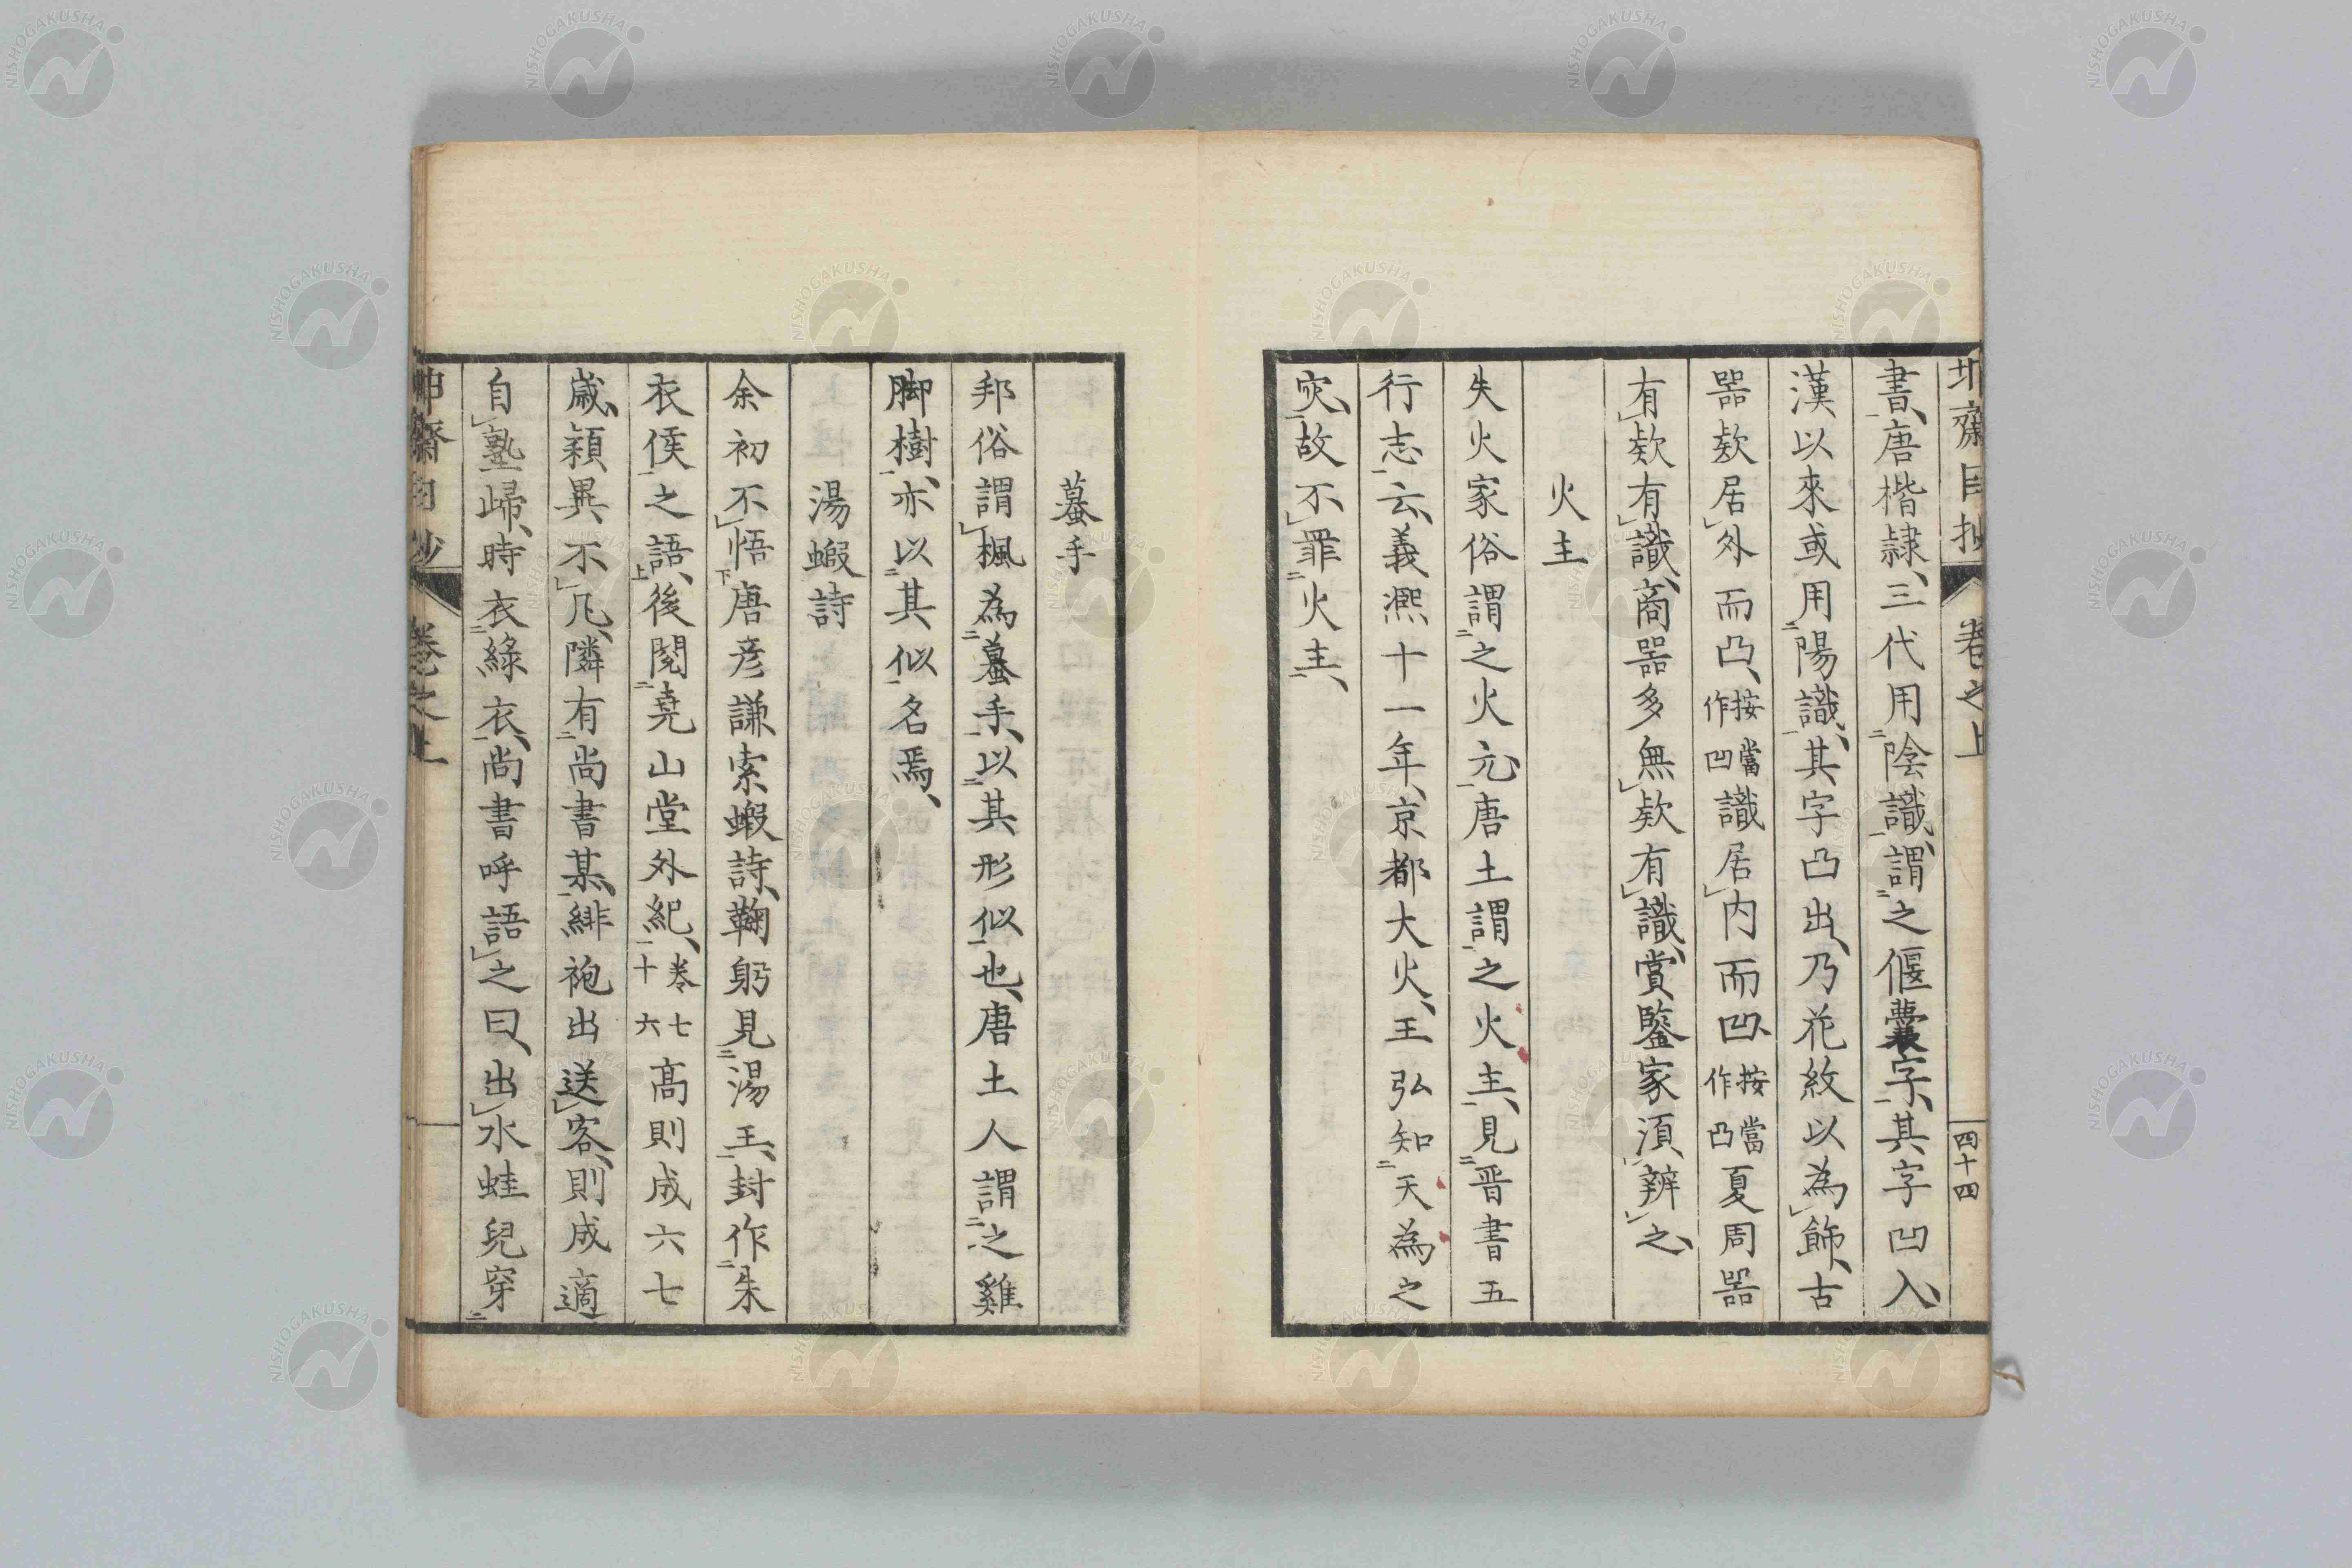 書、唐楷隷、三代用陰識、謂之偃囊字、其字凹入、
漢以來或用陽識、其字凸出、乃花紋以為飾、古
器欵居外而凸、按當作凹識居内而凹、按當作凸夏周器
有欵有識、商器多無欵有識、賞鑒家須辨之、
火主
失火家俗謂之火元、唐土謂之火主、見晋書五
行志云、義熈十一年、京都大火、王弘知天為之
灾、故不罪火主、
卷之上
四十四
蟇手
邦俗謂楓為蟇手、以其形似也、唐土人謂之雞
脚樹、亦以其似名焉、
湯蝦詩
余初不悟唐彦謙索蝦詩、鞠躬見湯王、封作朱
衣侯之語、後閱堯山堂外紀、卷七十六高則成六七
歲、穎異不凡、隣有尚書某、緋袍出送客、則成適
自塾歸、時衣綠衣、尚書呼語之曰、出水蛙兒穿
卷之上
NISHOGAKUSHA